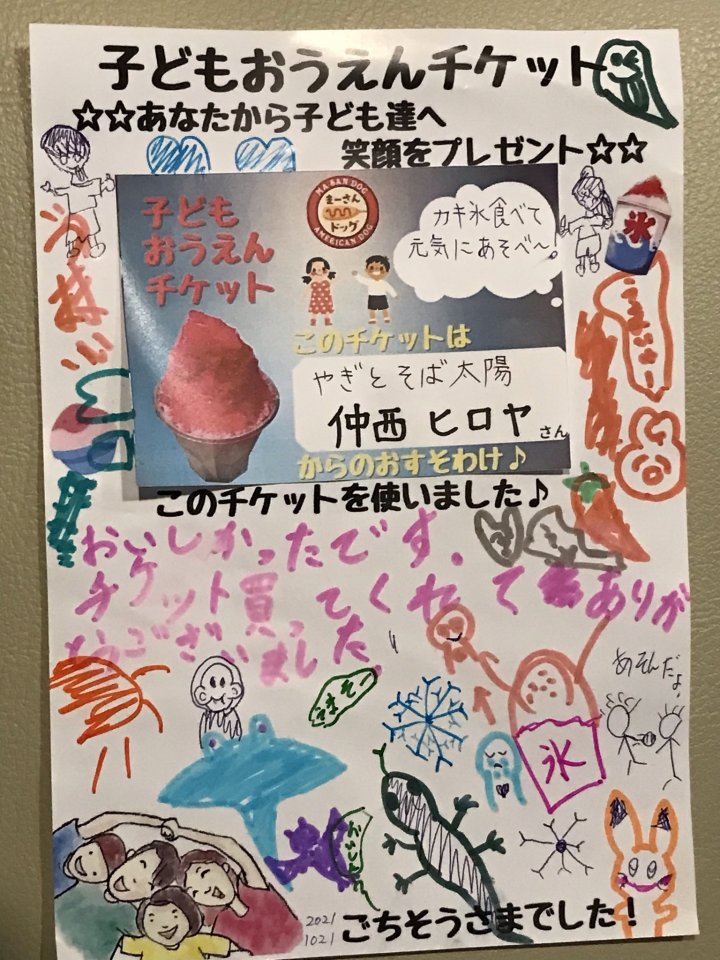 子どもおうえんチケット
☆☆あなたから子ども達へ
笑顔をプレゼント☆☆
MA-SAN DOG
まーさん
ドッグ
AMERICAN DOG
子ども
おうえん
チケット
カキ氷食べて
元気にあそべ〜!
氷
このチケットは
やぎとそば太陽
仲西 ヒロヤ さん
からのおすそわけ♪
このチケットを使いました♪
おいしかったです.
チケット買ってくれてありが
とうございました.
あそんだよ.
氷
2021
1021
ごちそうさまでした!